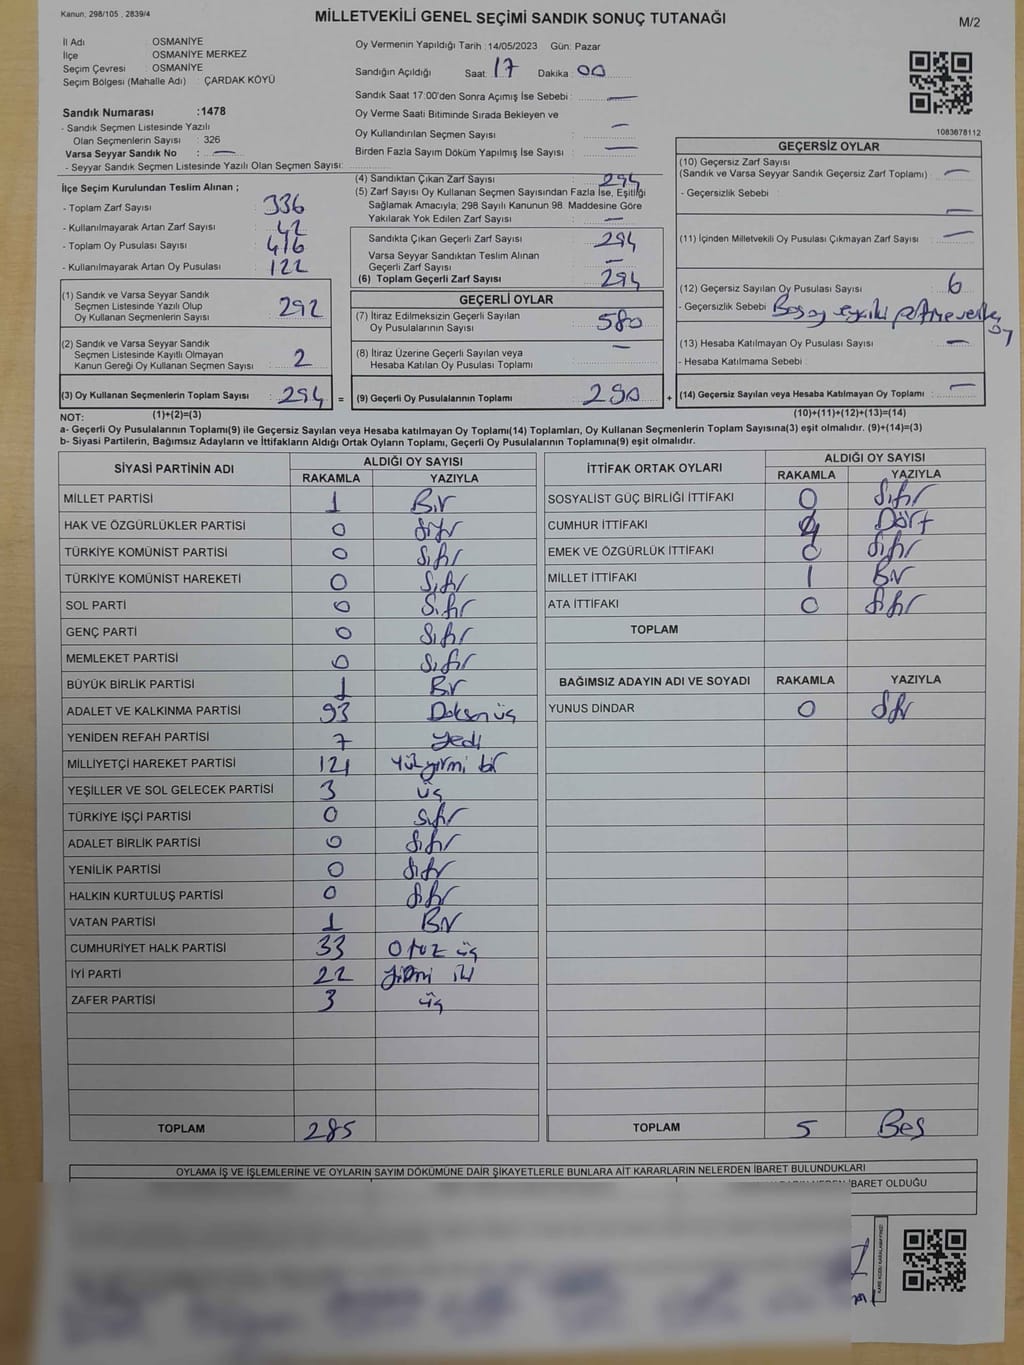 Kanun: 298/105 , 2839/4
MİLLETVEKİLİ GENEL SEÇİMİ SANDIK SONUÇ TUTANAĞI
M/2
İl Adı : OSMANİYE
İlçe : OSMANİYE MERKEZ
Seçim Çevresi : OSMANİYE
Seçim Bölgesi (Mahalle Adı) : ÇARDAK KÖYÜ
Sandık Numarası :1478
- Sandık Seçmen Listesinde Yazılı
Olan Seçmenlerin Sayısı : 326
Varsa Seyyar Sandık No : —
- Seyyar Sandık Seçmen Listesinde Yazılı Olan Seçmen Sayısı:
Oy Vermenin Yapıldığı Tarih :14/05/2023 Gün: Pazar
Sandığın Açıldığı Saat: 17 Dakika : 00
Sandık Saat 17:00'den Sonra Açımış İse Sebebi : —
Oy Verme Saati Bitiminde Sırada Bekleyen ve
Oy Kullandırılan Seçmen Sayısı : —
Birden Fazla Sayım Döküm Yapılmış İse Sayısı : —
1083678112
İlçe Seçim Kurulundan Teslim Alınan ;
- Toplam Zarf Sayısı : 336
- Kullanılmayarak Artan Zarf Sayısı : 42
- Toplam Oy Pusulası Sayısı : 416
- Kullanılmayarak Artan Oy Pusulası : 122
(1) Sandık ve Varsa Seyyar Sandık
Seçmen Listesinde Yazılı Olup
Oy Kullanan Seçmenlerin Sayısı : 292
(2) Sandık ve Varsa Seyyar Sandık
Seçmen Listesinde Kayıtlı Olmayan
Kanun Gereği Oy Kullanan Seçmen Sayısı : 2
(3) Oy Kullanan Seçmenlerin Toplam Sayısı : 294 =
(4) Sandıktan Çıkan Zarf Sayısı : 294
(5) Zarf Sayısı Oy Kullanan Seçmen Sayısından Fazla İse, Eşitliği
Sağlamak Amacıyla; 298 Sayılı Kanunun 98. Maddesine Göre
Yakılarak Yok Edilen Zarf Sayısı : —
Sandıkta Çıkan Geçerli Zarf Sayısı : 294
Varsa Seyyar Sandıktan Teslim Alınan
Geçerli Zarf Sayısı : —
(6) Toplam Geçerli Zarf Sayısı : 294
GEÇERLİ OYLAR
(7) İtiraz Edilmeksizin Geçerli Sayılan
Oy Pusulalarının Sayısı : 580
(8) İtiraz Üzerine Geçerli Sayılan veya
Hesaba Katılan Oy Pusulası Toplamı : —
(9) Geçerli Oy Pusulalarının Toplamı : 290 +
GEÇERSİZ OYLAR
(10) Geçersiz Zarf Sayısı
(Sandık ve Varsa Seyyar Sandık Geçersiz Zarf Toplamı) : —
- Geçersizlik Sebebi : —
(11) İçinden Milletvekili Oy Pusulası Çıkmayan Zarf Sayısı : —
(12) Geçersiz Sayılan Oy Pusulası Sayısı : 6
- Geçersizlik Sebebi :
(13) Hesaba Katılmayan Oy Pusulası Sayısı : —
- Hesaba Katılmama Sebebi :
(14) Geçersiz Sayılan veya Hesaba Katılmayan Oy Toplamı : —
NOT: (1)+(2)=(3) (10)+(11)+(12)+(13)=(14)
a- Geçerli Oy Pusulalarının Toplamı(9) ile Geçersiz Sayılan veya Hesaba katılmayan Oy Toplamı(14) Toplamları, Oy Kullanan Seçmenlerin Toplam Sayısına(3) eşit olmalıdır. (9)+(14)=(3)
b- Siyasi Partilerin, Bağımsız Adayların ve İttifakların Aldığı Ortak Oyların Toplamı, Geçerli Oy Pusulalarının Toplamına(9) eşit olmalıdır.
SİYASİ PARTİNİN ADI ALDIĞI OY SAYISI
RAKAMLA YAZIYLA
MİLLET PARTİSİ 1 Bir
HAK VE ÖZGÜRLÜKLER PARTİSİ 0 Sıfır
TÜRKİYE KOMÜNİST PARTİSİ 0 Sıfır
TÜRKİYE KOMÜNİST HAREKETİ 0 Sıfır
SOL PARTİ 0 Sıfır
GENÇ PARTİ 0 Sıfır
MEMLEKET PARTİSİ 0 Sıfır
BÜYÜK BİRLİK PARTİSİ 1 Bir
ADALET VE KALKINMA PARTİSİ 93 Doksan üç
YENİDEN REFAH PARTİSİ 7 yedi
MİLLİYETÇİ HAREKET PARTİSİ 121 Yüz yirmi bir
YEŞİLLER VE SOL GELECEK PARTİSİ 3 üç
TÜRKİYE İŞÇİ PARTİSİ 0 Sıfır
ADALET BİRLİK PARTİSİ 0 Sıfır
YENİLİK PARTİSİ 0 Sıfır
HALKIN KURTULUŞ PARTİSİ 0 Sıfır
VATAN PARTİSİ 1 Bir
CUMHURİYET HALK PARTİSİ 33 Otuz üç
İYİ PARTİ 22 yirmi iki
ZAFER PARTİSİ 3 üç
TOPLAM 285
İTTİFAK ORTAK OYLARI ALDIĞI OY SAYISI
RAKAMLA YAZIYLA
SOSYALİST GÜÇ BİRLİĞİ İTTİFAKI 0 Sıfır
CUMHUR İTTİFAKI 4 Dört
EMEK VE ÖZGÜRLÜK İTTİFAKI 0 Sıfır
MİLLET İTTİFAKI 1 Bir
ATA İTTİFAKI 0 Sıfır
TOPLAM
BAĞIMSIZ ADAYIN ADI VE SOYADI RAKAMLA YAZIYLA
YUNUS DİNDAR 0 Sıfır
TOPLAM 5 Beş
OYLAMA İŞ VE İŞLEMLERİNE VE OYLARIN SAYIM DÖKÜMÜNE DAİR ŞİKAYETLERLE BUNLARA AİT KARARLARIN NELERDEN İBARET BULUNDUKLARI
İBARET OLDUĞU